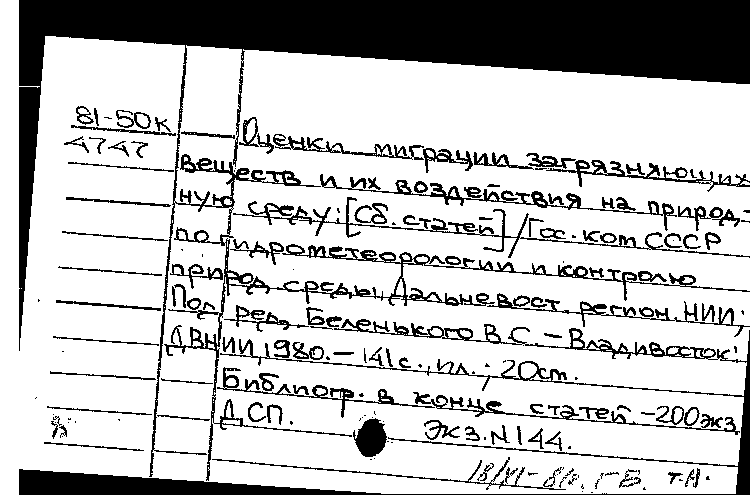 81-50к
4747
Оценки миграции загрязняющих
веществ и их воздействия на природ-
ную среду: [Сб. статей] / Гос. ком СССР
по гидрометеорологии и контролю
природ. среды, Дальневост. регион. НИИ;
Под ред. Беленького В.С. – Владивосток:
ДВНИИ, 1980. – 141 с., ил.; 20 см.
Библиогр. в конце статей. – 200 экз.
ДСП. Экз. N 144.